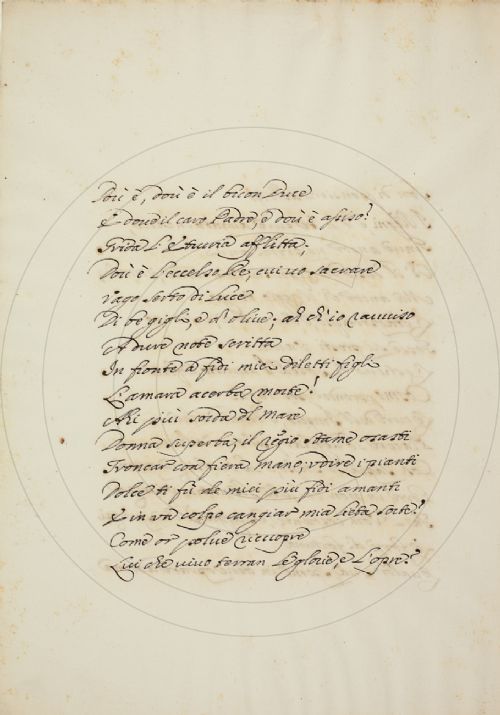 Dou è, dou è il bicon Luce
E doue il caro Padre, e dou è asiso?
Grida l'Etruria afflitta;
Dou è l'eccelso Re, cui uo sacrare
vago serto di Luce
Di bei gigli, e d'oliue; ah ch'io rauuiso
A dure note scritta
In fronte a fidi miei diletti figli
L'amara acerba morte!
Ahi più sorda del mare
Donna superba; il regio stame osasti
Troncar con fiera mano; vdire i pianti
Dolce ti fù de miei più fidi amanti
E in vn colpo cangiar mia lieta sorte?
Come or polue ricopre
Lui che viuo terran le glorie, e l'opre?